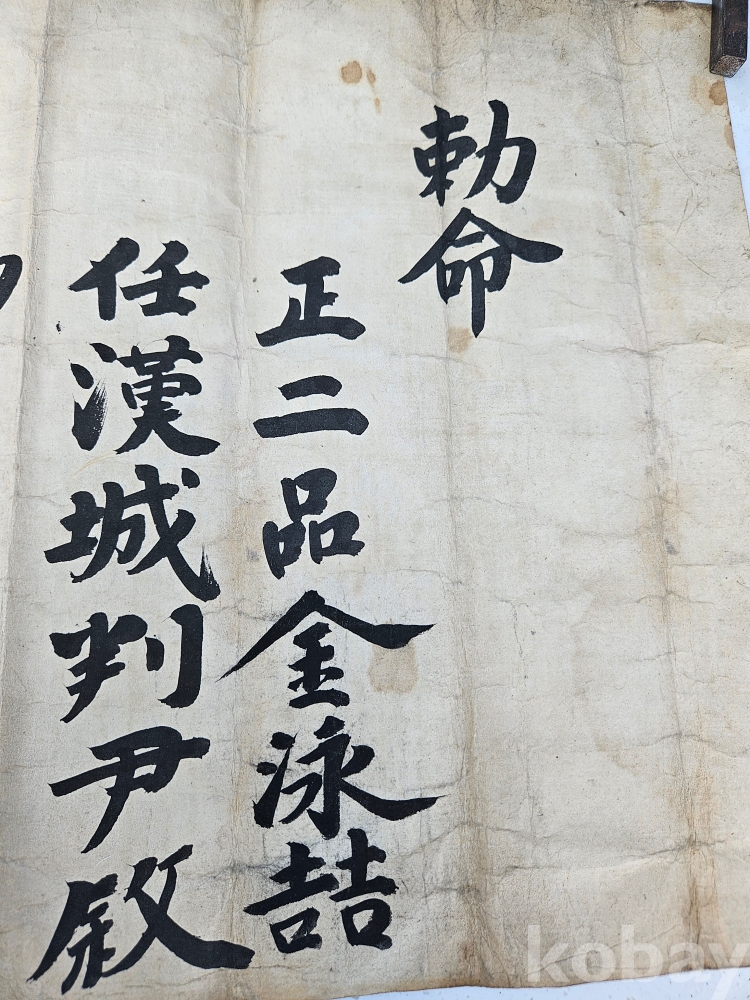 勅命
正二品金泳喆
任漢城判尹敘
kobay